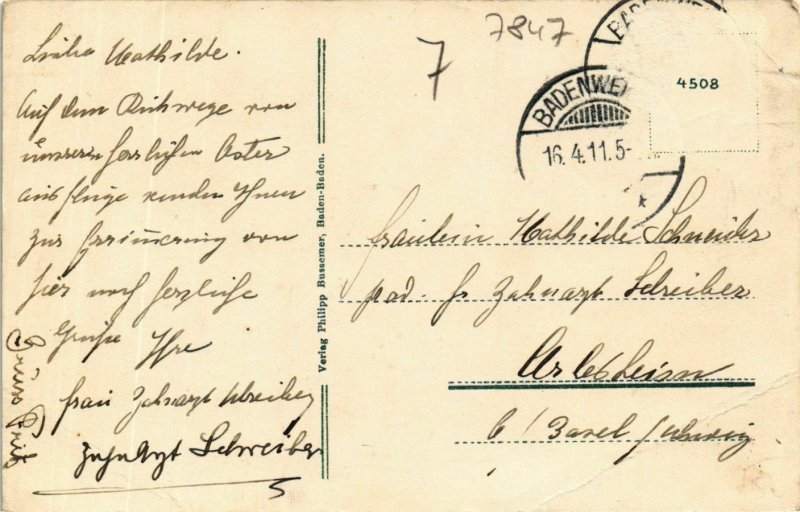 Liebe Mathilde.
Auf dem Rückwege von
unserem herrlichen Oster
ausfluge senden Ihnen
zur Errinnerung von
hier noch herzliche
Grüsse Ihre
Frau Zahnarzt Schreiber
Zahnarzt Schreiber
Gruss
Verlag Philipp Bussemer, Baden-Baden.
7
7847
BADENWEI
16.4.11.5-
4508
Fräulein Mathilde Schneider
pad. fr Zahnarzt Schreiber
Arlesheim
b/ Basel Schweiz